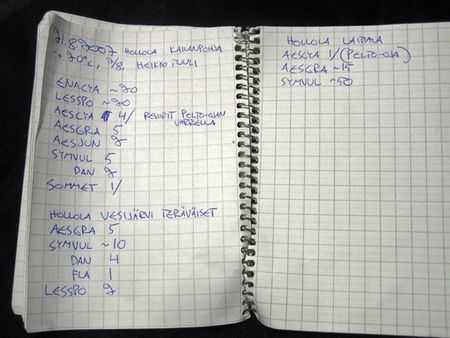 21.8.2007 HOLLOLA KAILANPOHJA
~ 20°C, 7/8, HEIKKO TUULI
ENACYA ~20
LESSPO ~20
AESCYA 4/ REVIIRIT PELTO-OJAN VARRELLA
AESGRA 5
AESJUN 2
SYMVUL 5
DAN 2
SOMMET 1/
HOLLOLA VESIJÄRVI TERÄVÄISET
AESGRA 5
SYMVUL ~10
DAN 4
FLA 1
LESSPO 2
HOLLOLA LAITALA
AESCYA 1/(PELTO-OJA)
AESGRA ~15
SYMVUL ~50